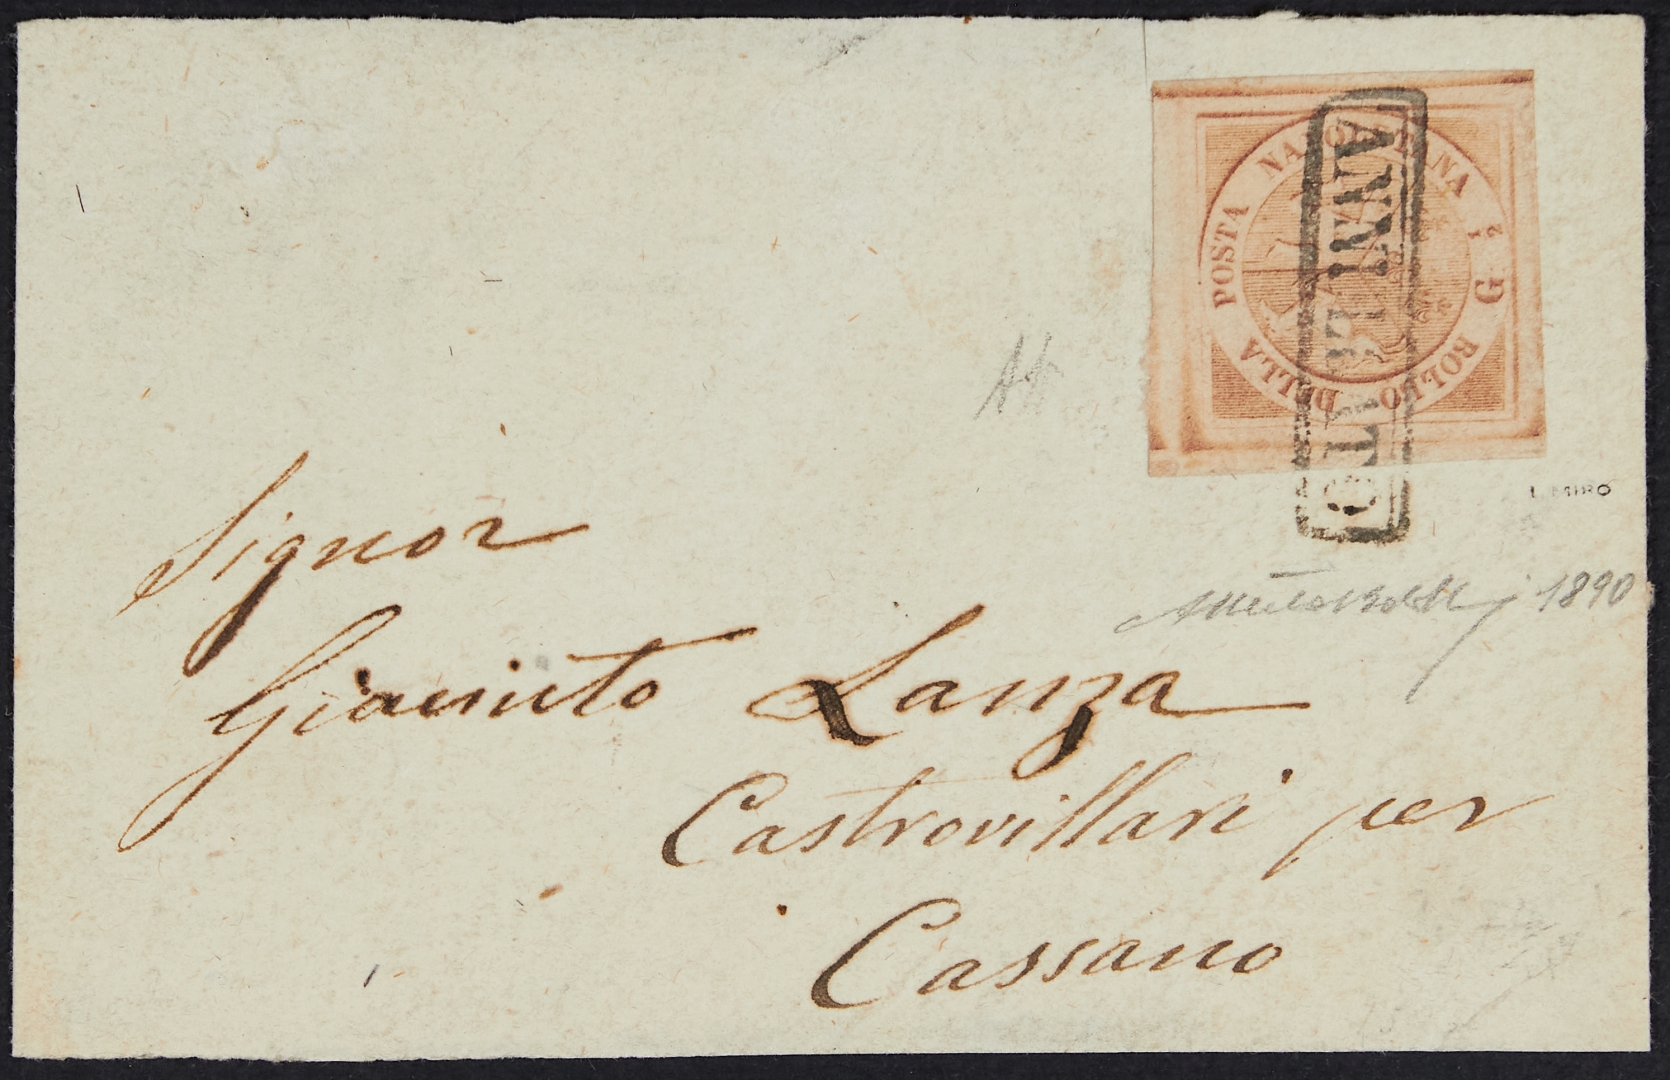 BOLLO DELLA POSTA NAPOLETANA
G 1/2
ANNULLATO
L. MIRÒ
1890
Signor
Giacinto Lanza
Castrovillari per
Cassano